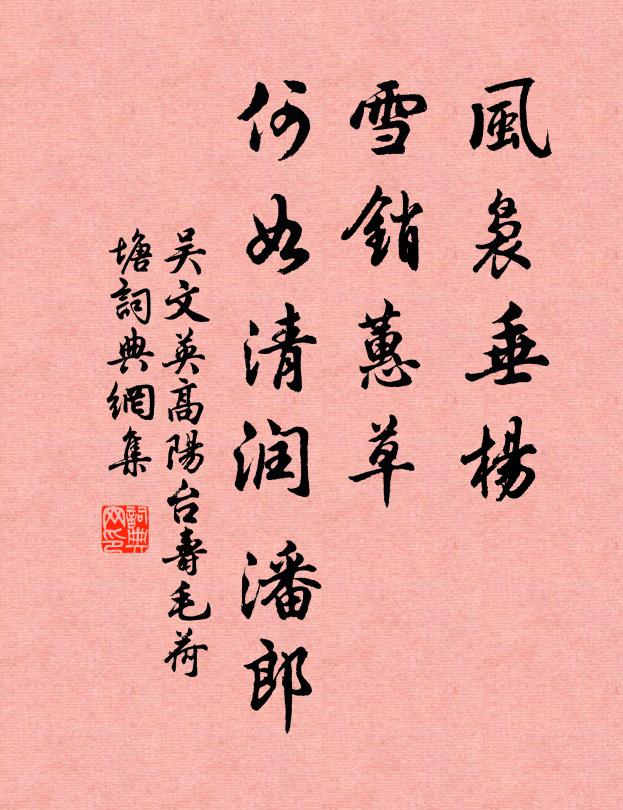 風裊垂楊
雪銷蕙草
何如清润潘郎
吴文英高陽台壽毛荷
塘詞典網集
詞典网印